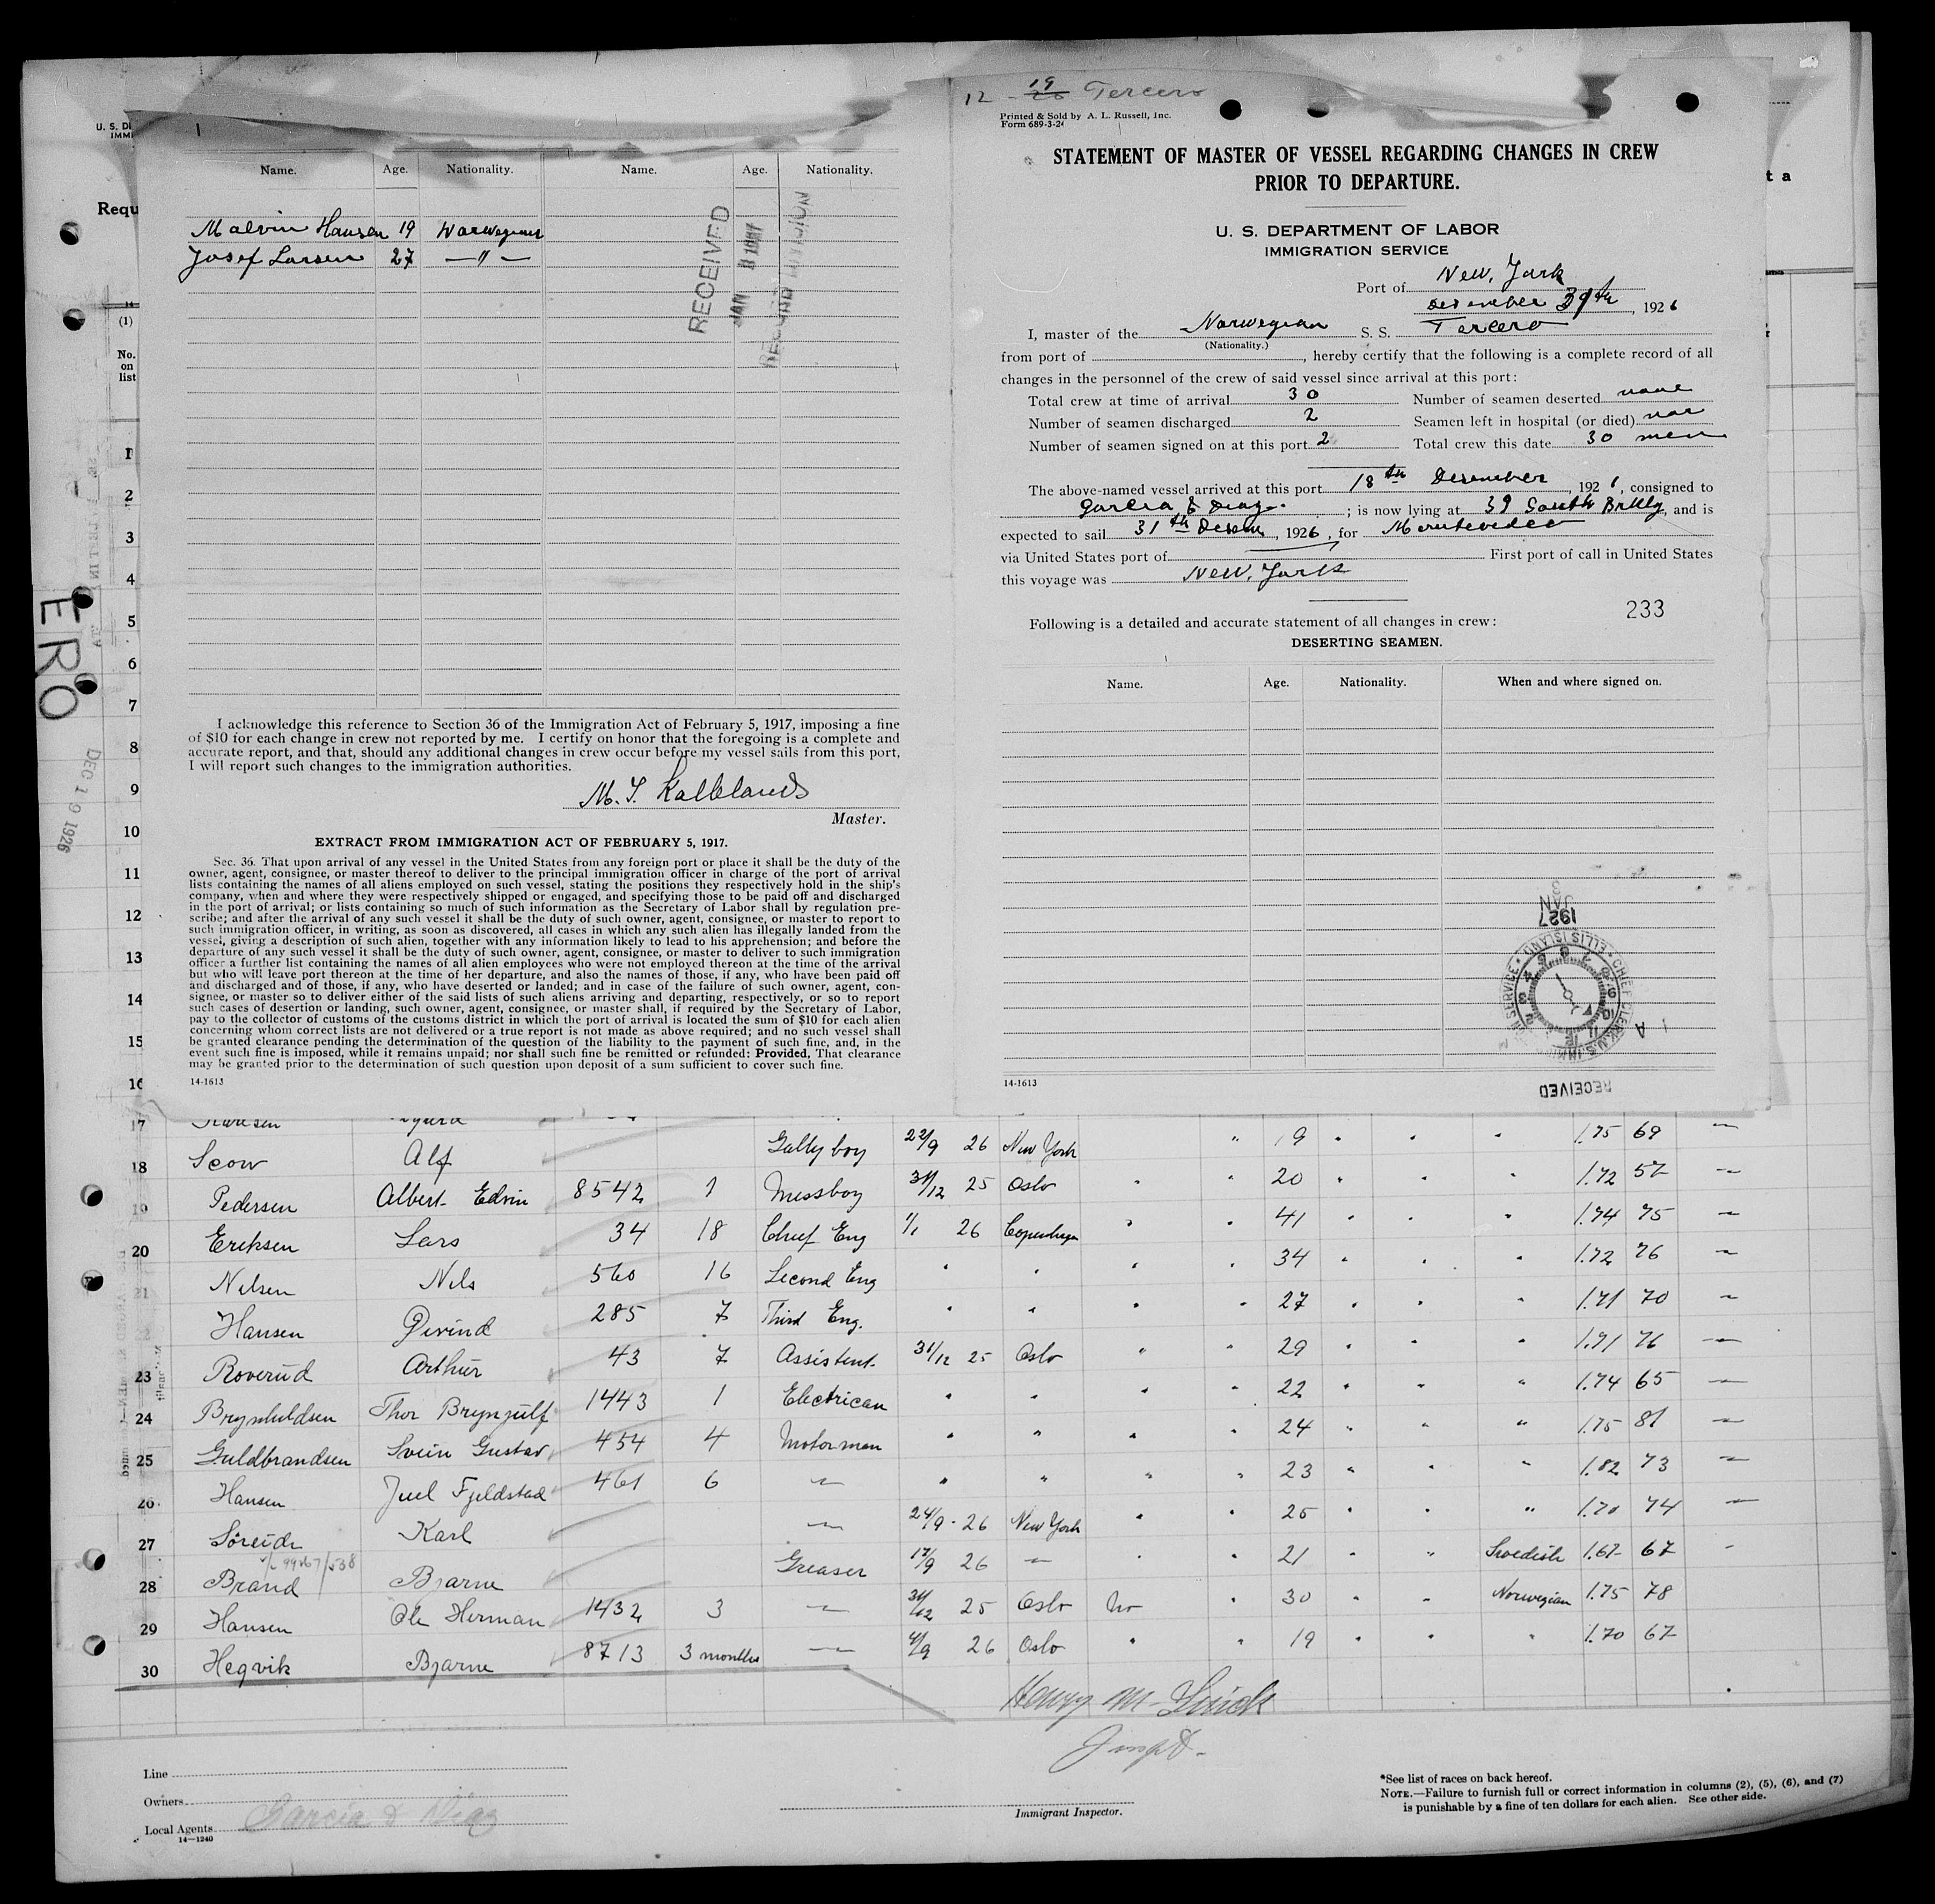 U. S. D
IMMI
Requ
ERO
DEC 19 1926
(1)
No.
on
list
1
2
3
4
5
6
7
8
9
10
11
12
13
14
15
16
Name. Age. Nationality. Name. Age. Nationality.
Malvin Hansen 19 Norwegians
Josef Larsen 27 — " —
RECEIVED
JAN 8 1927
RECORD DIVISION
I acknowledge this reference to Section 36 of the Immigration Act of February 5, 1917, imposing a fine
of $10 for each change in crew not reported by me. I certify on honor that the foregoing is a complete and
accurate report, and that, should any additional changes in crew occur before my vessel sails from this port,
I will report such changes to the immigration authorities.
Master.
EXTRACT FROM IMMIGRATION ACT OF FEBRUARY 5, 1917.
Sec. 36. That upon arrival of any vessel in the United States from any foreign port or place it shall be the duty of the
owner, agent, consignee, or master thereof to deliver to the principal immigration officer in charge of the port of arrival
lists containing the names of all aliens employed on such vessel, stating the positions they respectively hold in the ship's
company, when and where they were respectively shipped or engaged, and specifying those to be paid off and discharged
in the port of arrival; or lists containing so much of such information as the Secretary of Labor shall by regulation pre-
scribe; and after the arrival of any such vessel it shall be the duty of such owner, agent, consignee, or master to report to
such immigration officer, in writing, as soon as discovered, all cases in which any such alien has illegally landed from the
vessel, giving a description of such alien, together with any information likely to lead to his apprehension; and before the
departure of any such vessel it shall be the duty of such owner, agent, consignee, or master to deliver to such immigration
officer a further list containing the names of all alien employees who were not employed thereon at the time of the arrival
but who will leave port thereon at the time of her departure, and also the names of those, if any, who have been paid off
and discharged and of those, if any, who have deserted or landed; and in case of the failure of such owner, agent, con-
signee, or master so to deliver either of the said lists of such aliens arriving and departing, respectively, or so to report
such cases of desertion or landing, such owner, agent, consignee, or master shall, if required by the Secretary of Labor,
pay to the collector of customs of the customs district in which the port of arrival is located the sum of $10 for each alien
concerning whom correct lists are not delivered or a true report is not made as above required; and no such vessel shall
be granted clearance pending the determination of the question of the liability to the payment of such fine, and, in the
event such fine is imposed, while it remains unpaid; nor shall such fine be remitted or refunded: Provided, That clearance
may be granted prior to the determination of such question upon deposit of a sum sufficient to cover such fine.
14-1613
12 - 19 Tercero
Printed & Sold by A. L. Russell, Inc.
Form 689-3-24
STATEMENT OF MASTER OF VESSEL REGARDING CHANGES IN CREW
PRIOR TO DEPARTURE.
U. S. DEPARTMENT OF LABOR
IMMIGRATION SERVICE
Port of New, York
Desember 31th, 1926
I, master of the Norwegian S. S. Tercero
(Nationality.)
from port of , hereby certify that the following is a complete record of all
changes in the personnel of the crew of said vessel since arrival at this port:
Total crew at time of arrival 30 Number of seamen deserted none
Number of seamen discharged 2 Seamen left in hospital (or died) non
Number of seamen signed on at this port 2 Total crew this date 30 men
The above-named vessel arrived at this port 18th Desember, 1926, consigned to
Garcia & Diaz ; is now lying at 39 South Brklg, and is
expected to sail 31th Desem, 1926, for Montevedeo
via United States port of First port of call in United States
this voyage was New, York
233
Following is a detailed and accurate statement of all changes in crew:
DESERTING SEAMEN.
Name. Age. Nationality. When and where signed on.
JAN 8 1927
CHIEF CLERK U.S. IMMIGRATION SERVICE • ELLIS ISLAND •
RECEIVED
14-1613
t a
17
18 Scow Alf Galley boy 22/9 26 New York " 19 " " " 1.75 69 —
19 Pedersen Albert Edvin 8542 1 Messboy 31/12 25 Oslo " " 20 " " " 1.72 57 —
20 Eriksen Lars 34 18 Chief Eng 1/1 26 Copenhagen " " 41 " " " 1.74 75 —
21 Nilsen Nils 560 16 Second Eng " " " " 34 " " " 1.72 76 —
22 Hansen Öivind 285 7 Third Eng. " " " " 27 " " " 1.71 70 —
23 Roverud Arthur 43 7 Assistent 31/12 25 Oslo " " 29 " " " 1.71 76 —
24 Brynhildsen Thor Brynjulf 1443 1 Electrican " " " " 22 " " " 1.74 65 —
25 Guldbrandsen Svein Gustav 454 4 Motorman " " " " 24 " " " 1.75 81 —
26 Hansen Juel Fjeldstad 461 6 — " " " " 23 " " " 1.82 73 —
27 Soreide Karl — 24/9 - 26 New York " " 25 " " " 1.70 74 —
28 Brand Bjarne Greaser 17/9 26 — " " 21 " " Swedish 1.67 67 -
29 Hansen Ole Herman 1432 3 — 31/12 25 Oslo No " 30 " " Norwegian 1.75 78
30 Hegvik Bjarne 8713 3 months — 4/9 26 Oslo " " 19 " " " 1.70 67
Line
Owners
Local Agents Garcia & Diaz
14—1240
Immigrant Inspector.
*See list of races on back hereof.
NOTE.—Failure to furnish full or correct information in columns (2), (5), (6), and (7)
is punishable by a fine of ten dollars for each alien. See other side.